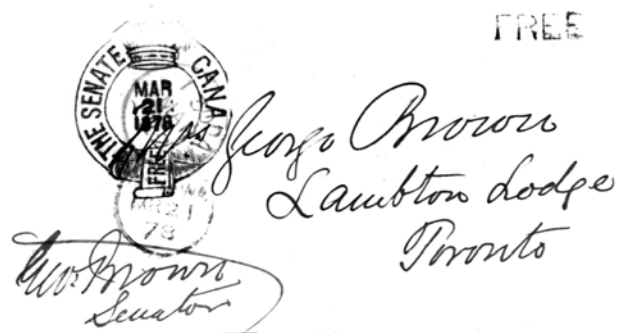 FREE
THE SENATE CANADA
MAR
21
1878
FREE
Mrs George Brown
Lambton Lodge
Toronto
MR 21
78
Geo. Brown
Senator